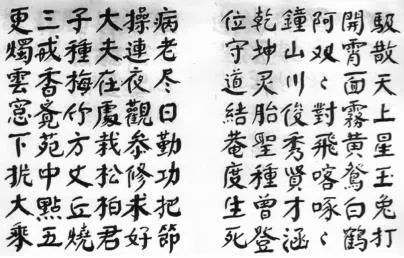 馭散天上星玉兔打
開霄面霧黃鶯白鶴
阿双〻對飛喀啄〻
鐘山川俊秀賢才涵
乾坤灵胎聖種曾登
位守道結菴度生死
病老尽日勤功把節
操連夜觀叅修求好
大夫在處栽松柏君
子種梅竹方丈丘燒
三戒香斎苑中點五
更燭雲窓下扰大乘